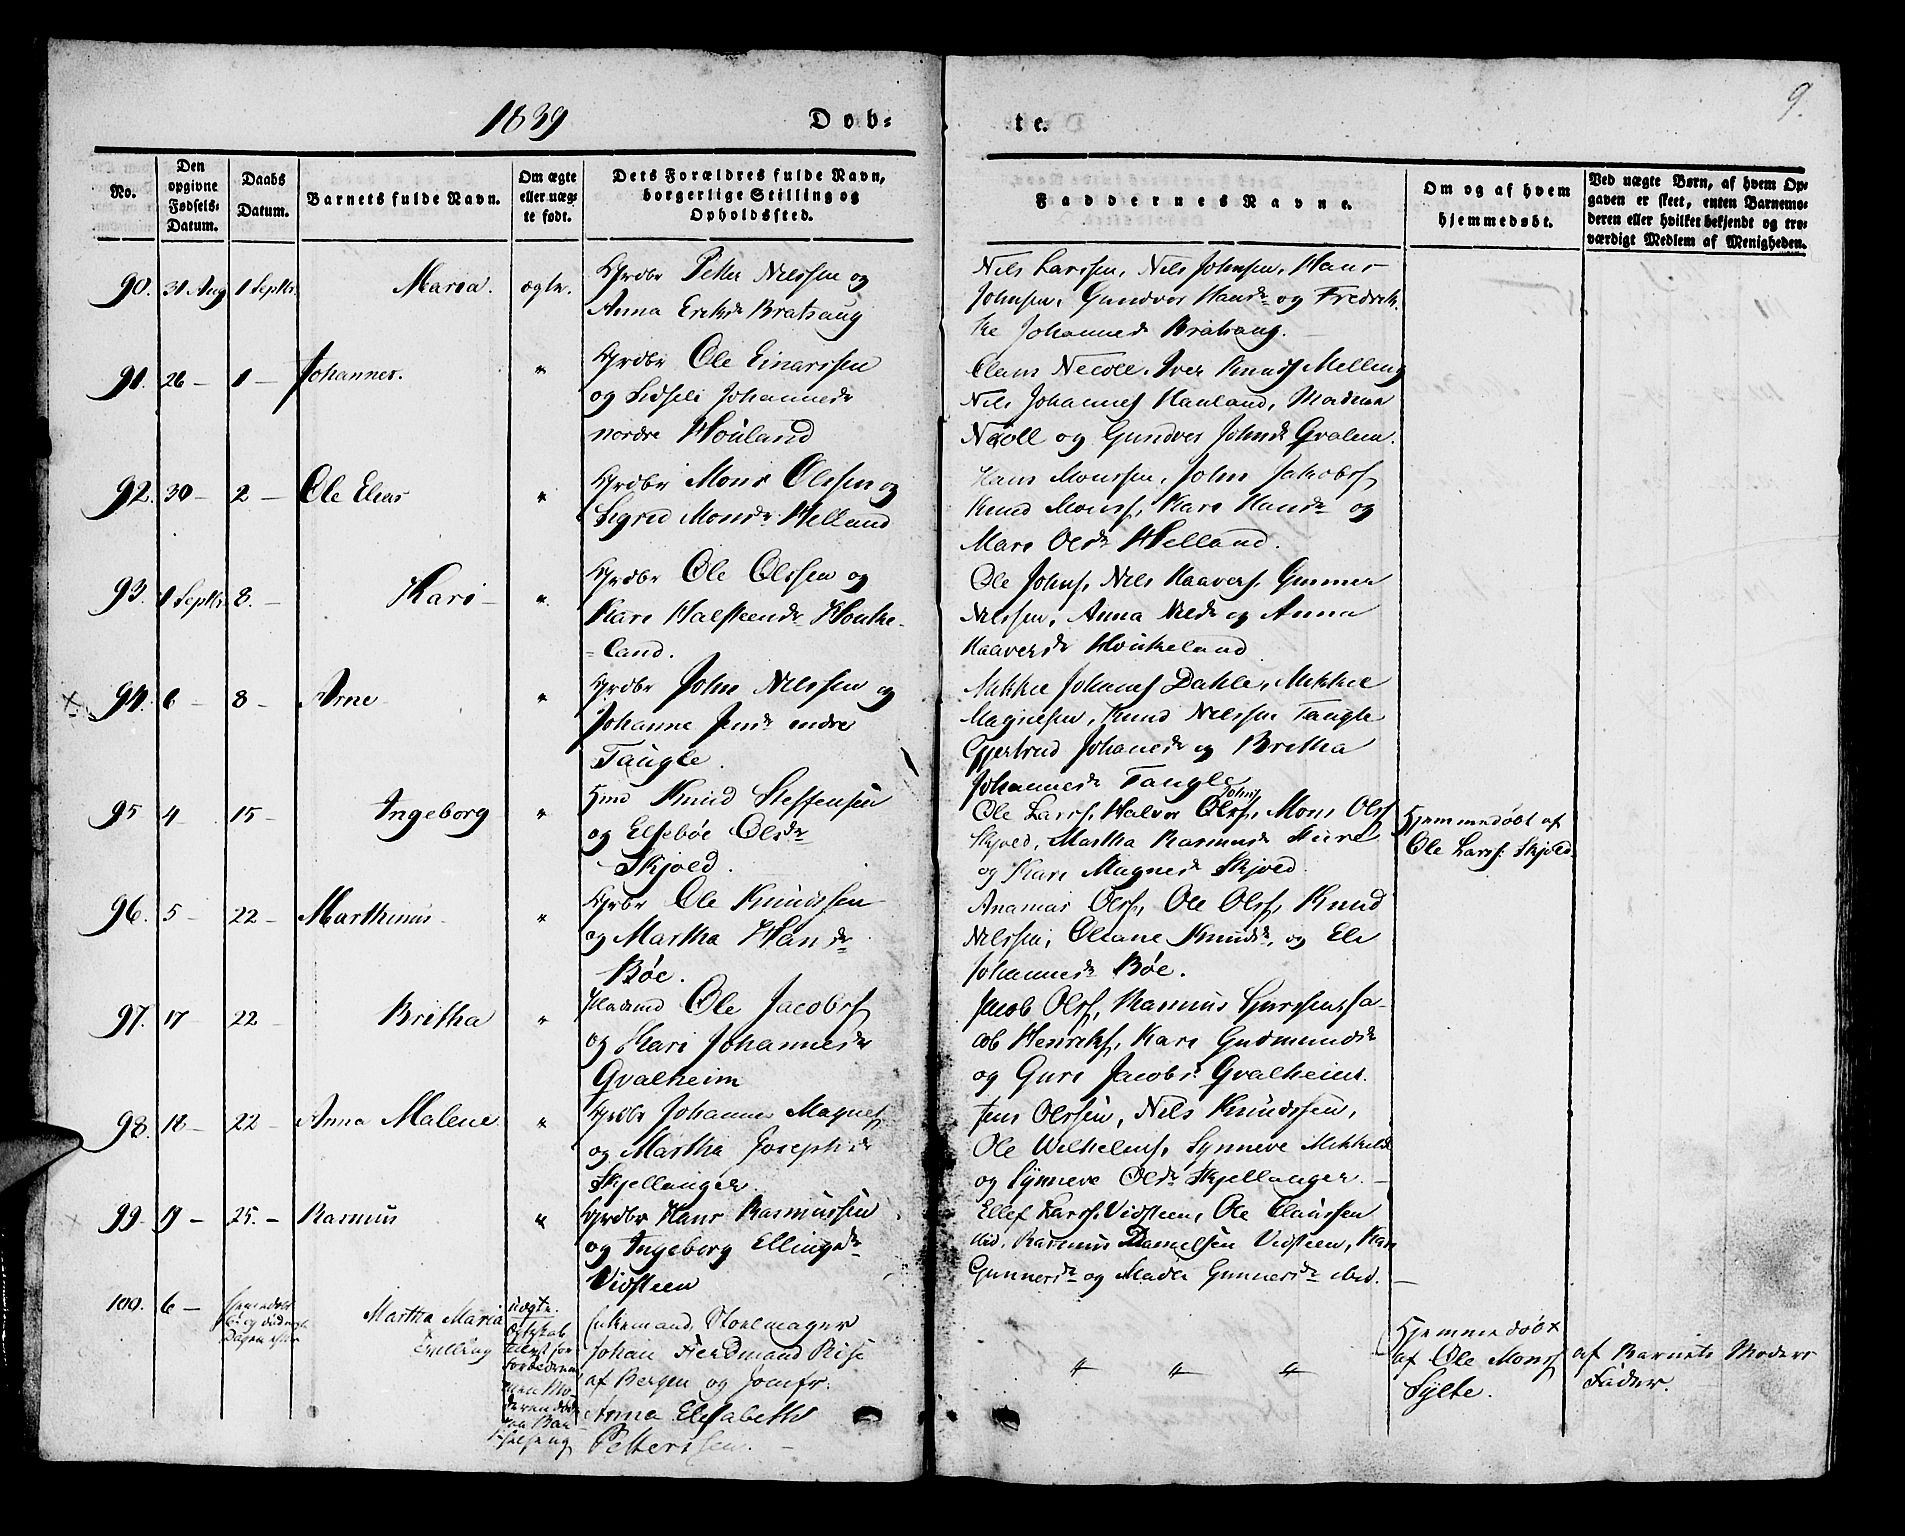 1839
Døb-
te.
9.
No.
Den opgivne Fødsels-Datum.
Daabs Datum.
Barnets fulde Navn.
Om ægte eller uægte født.
Dets Forældres fulde Navn, borgerlige Stilling og Opholdssted.
Faddernes Navne.
Om og af hvem hjemmedøbt.
Ved uægte Børn, af hvem Opgaven er skeet, enten Barnemoderen eller hvilket bekjendt og troværdigt Medlem af Menigheden.
90. 31 Aug 1 Septbr. Maria. ægte.
Grdbr Peter Nelssen og
Anna Eriksdr Bratsaug
Nils Larssen, Nils Johnsen, Hans
Johnsen, Gundver Hansdr og Fredrik-
ke Johannesdr Bratsaug.
91. 26 — 1 — Johannes. "
Grdbr Ole Einarssen
og Sidseli Johannesdr
nordre Houland
Claus Necoll, Iver Knuds Melling
Nils Johannes Hauland, Madme
Necoll og Gundver Johnsdr Gvalem.
92. 30 — 2 — Ole Elias "
Grdbr Mons Olssen og
Sigrid Monsdr Helland
Hans Monssen, John Jakobs
Knud Mons, Kari Hansdr og
Mari Olsdr Helland.
93. 1 Septbr. 8. — Kari — "
Grdbr Ole Olssen og
Kari Halsteensdr Houke-
land.
Ole Johns, Nils Haavers, Gunner
Nelssen, Anna Nelsdr og Anna
Haaversdr Houkeland
94. 6 — 8 — Arne "
Grdbr John Nelssen og
Johanne Jensdr endre
Taugle.
Mikkel Johannes Dahle, Mikkel
Magnesen, Knud Nelssen Taugle
Gjertrud Johanesdr og Britha
Johannesdr Taugle
95 4 15 — Ingeborg "
Hmd Knud Steffensen
og Elsebøe Olsdr
Skjold.
Ole Larss, Halvor Olss, Mons Olss
Johns
Skjold, Martha Rasmusdr
og Kari Magnesdr Skjold
Hjemmedøbt af
Ole Larss. Skjold.
96. 5 — 22 — Marthinus "
Grbr Ole Knudssen
og Martha Hansdr
Bøe.
Ananias Olss, Ole Olss, Knud
Nelssen, Oliane Knudsdr, og Eli
Johannesdr Bøe.
97. 17 — 22 — Britha "
Pladsmd Ole Jacobs
og Kari Johannesdr
Gvalheim
Jacob Olss, Rasmus Ja-
cob Henriks, Kari Gudmundsdr
og Guri Jacobsdr Gvalheim.
98. 18 — 22 — Anna Malene "
Grdbr Johannes Magnes
og Martha Josephsdr
Skjellanger.
Jens Olssen, Nels Knudssen,
Ole Wilhelms, Synneve Mikkelsdr
og Synneve Olsdr Skjellanger. —
99. 9 — 25. — Rasmus "
Grdbr Hans Rasmussen
og Ingeborg Ellingsdr
Vidsteen
Ellef Larss. Vidsteen, Ole Claussen
ibid. Rasmus Danielsen Vidsteen, Kari
Gunnersdr og Madli Gunnersdr ibid. —
100. 6 —
Martha Maria
uægte.
Enkemand, Stoelmager
Johan Ferdinand Rise
af Bergen og Jomfr.
Anna Elisabeth
Petterssen. —
" " "
Hjemmedøbt
af Ole Monss
Sylte.
af Barnets Moders
Fader.